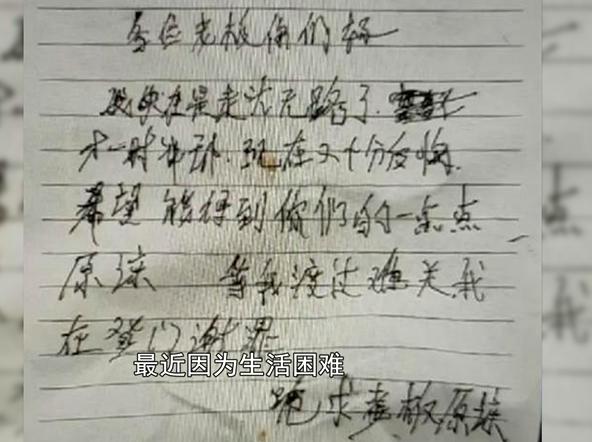 各位老板你们好
我实在是走头无路了
才一时冲动.现在又十分后悔.
希望能得到你们的一点点
原谅 等我渡过难关我
在登门谢罪
最近因为生活困难
跪求老板原谅